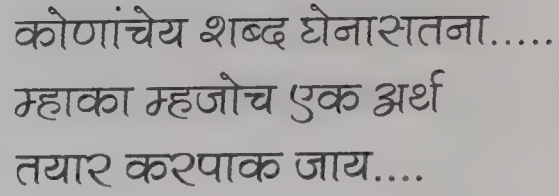 कोणांचेय शब्द घेनासतना.....
म्हाका म्हजोच एक अर्थ
तयार करपाक जाय....